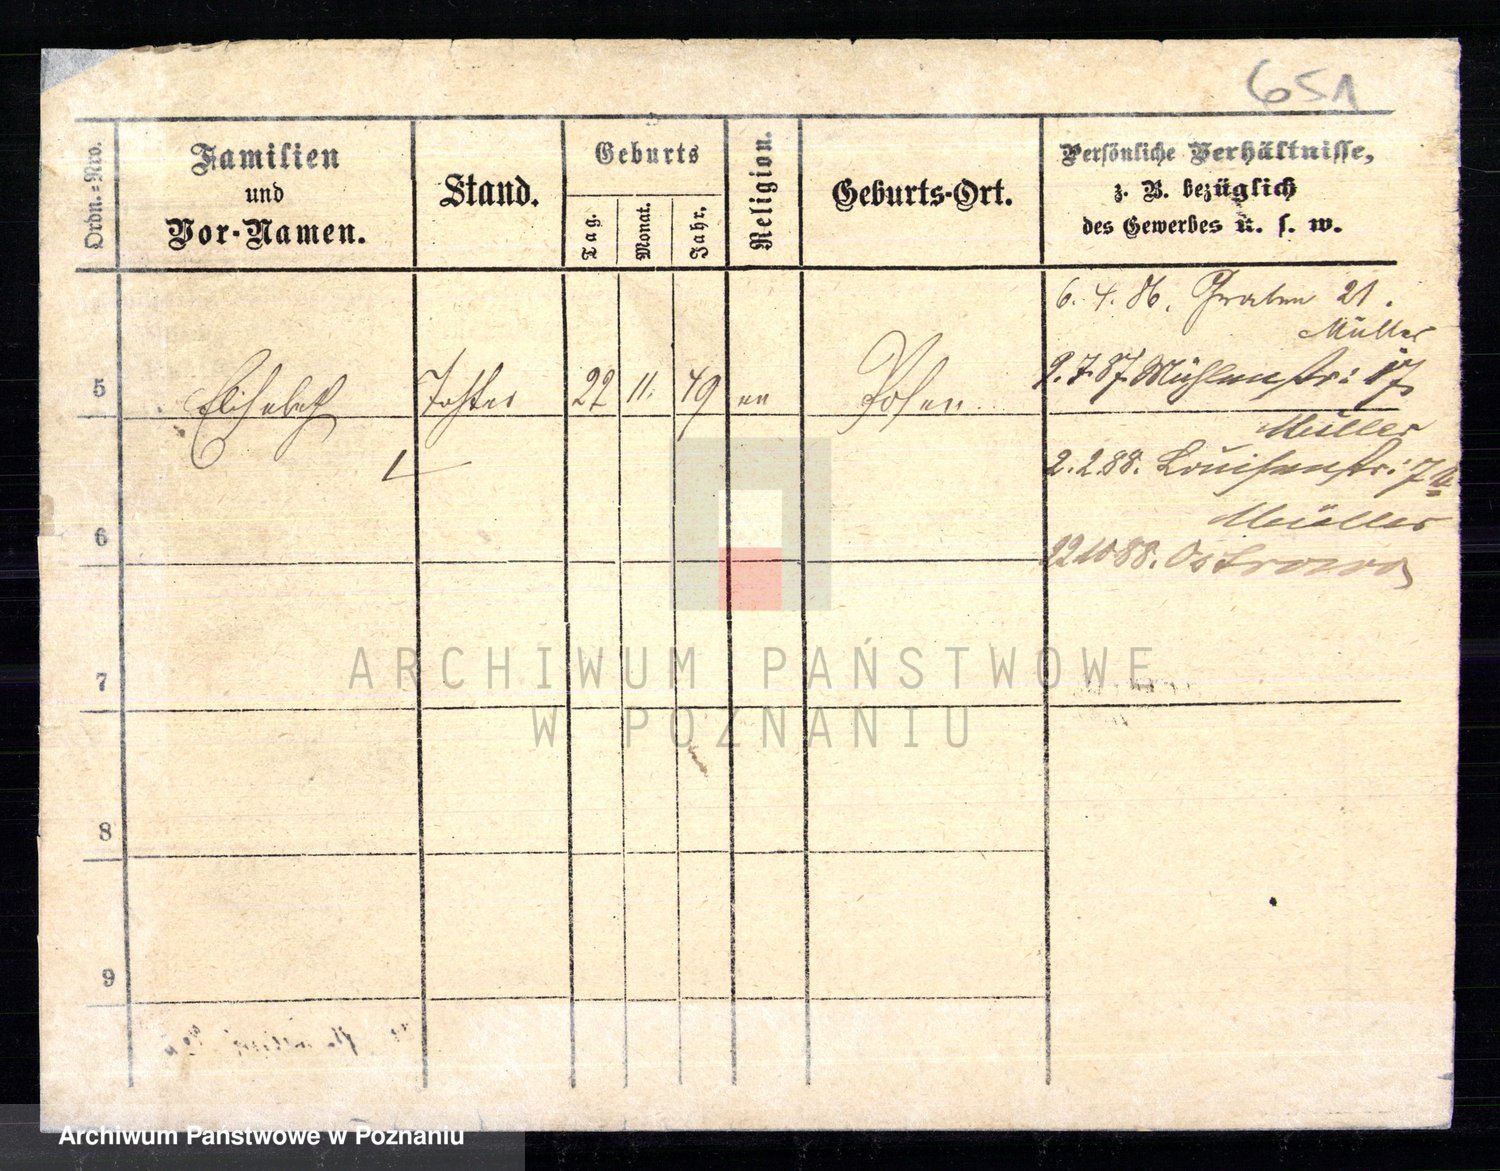 651
Ordn.-Nro.
Familien
und
Vor-Namen.
Stand.
Geburts
Tag.
Monat.
Jahr.
Religion.
Geburts-Ort.
Persönliche Verhältnisse,
z. B. bezüglich
des Gewerbes u. s. w.
6. 4. 86. Graben 21.
Müller
5 Elisabeth Tochter 22 11. 79 ev Posen
2.7.87. Mühlenstr: 17
Müller
2.2.88. Louisenstr: 7
Müller
22 10 88. Ostrowo
6
7
8
9
ARCHIWUM PAŃSTWOWE
W POZNANIU
Archiwum Państwowe w Poznaniu